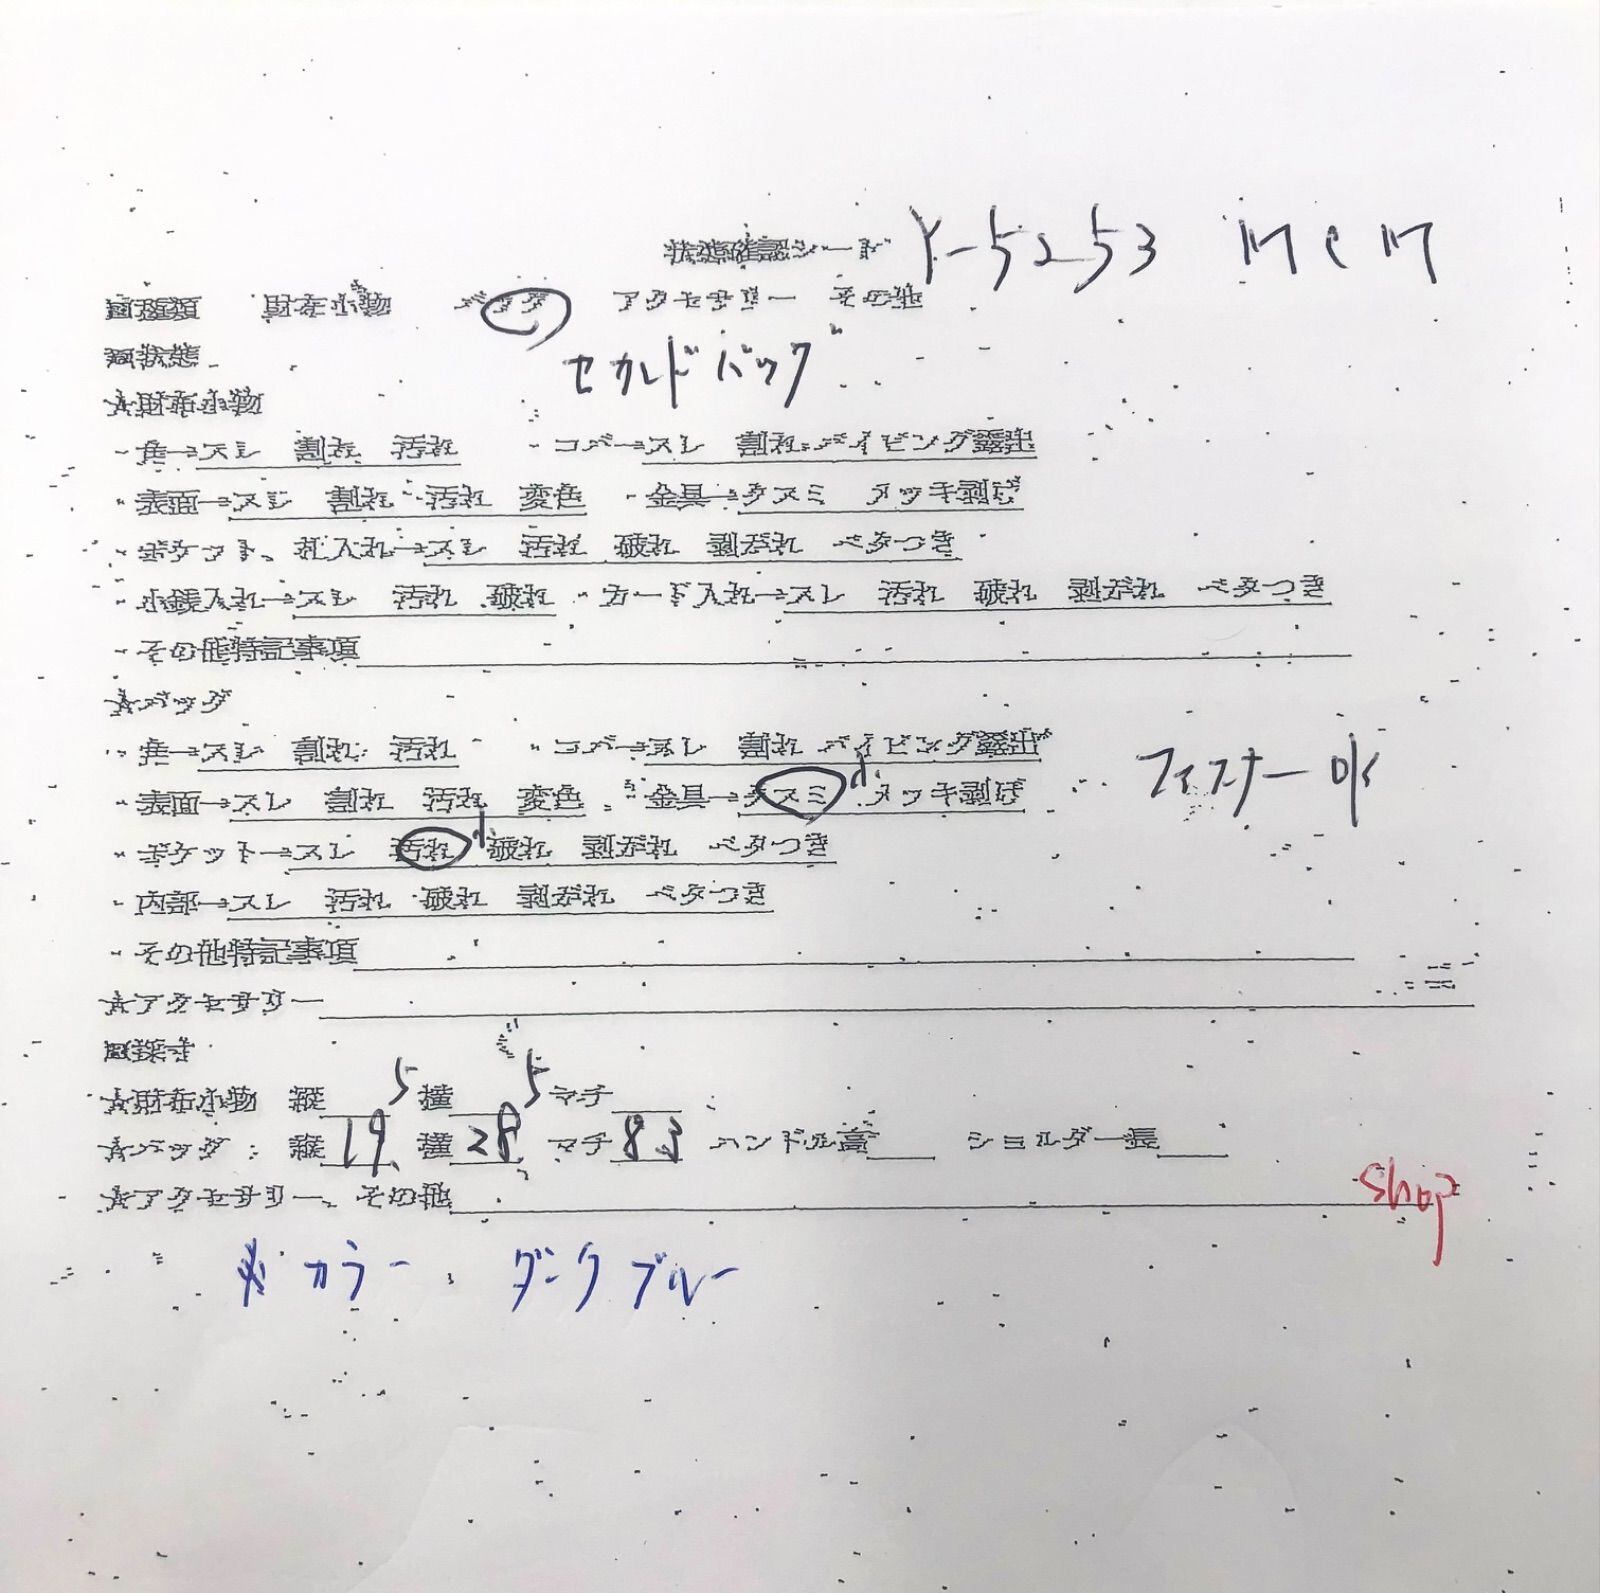 状態確認シート Y-5253 MCM
□種類 財布小物 バッグ アクセサリー その他
セカンドバッグ
□状態
☆財布小物
・角→スレ 割れ 汚れ ・コバ→スレ 割れ パイピング露出
・表面→スレ 割れ 汚れ 変色 ・金具→クスミ メッキ剥げ
・ポケット、札入れ→スレ 汚れ 破れ 剥がれ ベタつき
・小銭入れ→スレ 汚れ 破れ ・カード入れ→スレ 汚れ 破れ 剥がれ ベタつき
・その他特記事項
☆バッグ
・角→スレ 割れ 汚れ ・コバ→スレ 割れ パイピング露出
・表面→スレ 割れ 汚れ 変色 ・金具→クスミ 小 メッキ剥げ ファスナーOK
・ポケット→スレ 汚れ 小 破れ 剥がれ ベタつき
・内部→スレ 汚れ 破れ 剥がれ ベタつき
・その他特記事項
☆アクセサリー
□採寸
☆財布小物 縦 横 マチ
☆バッグ 縦 19.5 横 28.5 マチ 8.3 ハンドル高 ショルダー長
☆アクセサリー、その他 shop
※カラー、ダークブルー